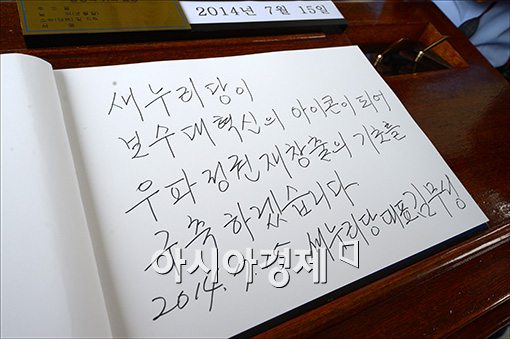 2014년 7월 15일
새누리당이
보수대혁신의 아이콘이 되어
우파정권 재창출의 기초를
구축하겠습니다
2014. 7. 15. 새누리당 대표 김무성
아시아경제